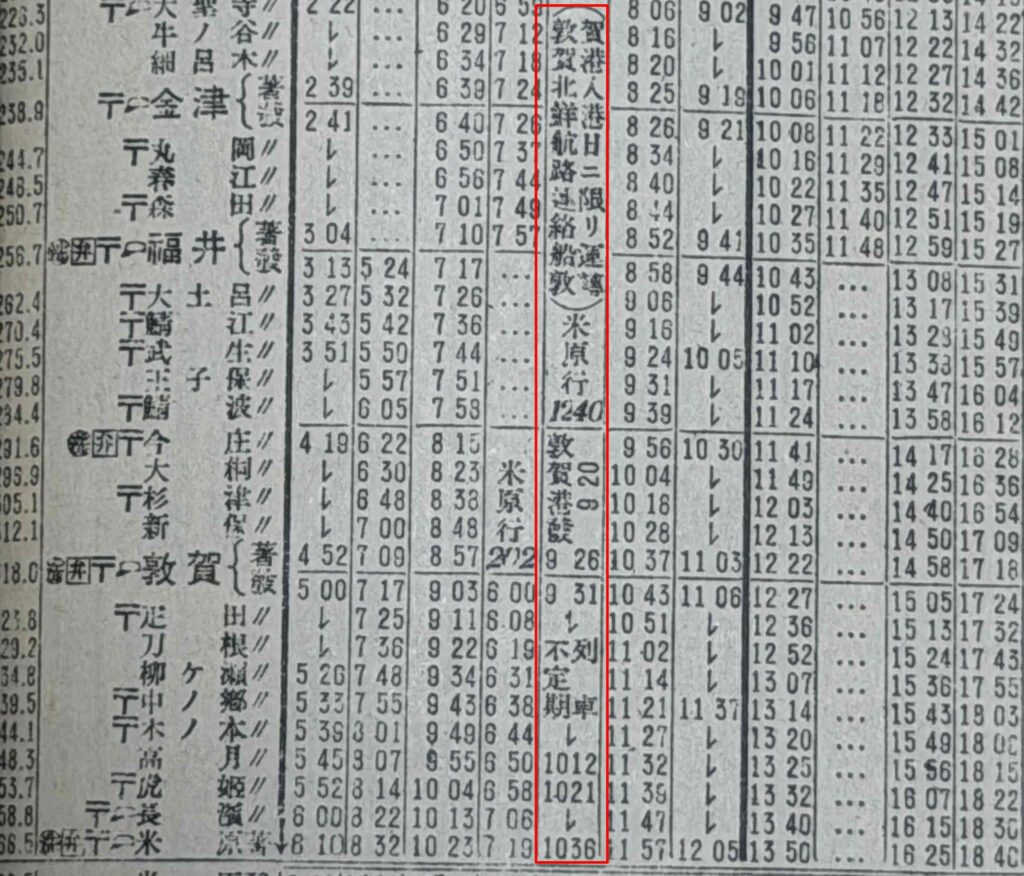 226.3 〒 大聖寺〃 2 22 ... 6 20 6 55 8 06 9 02 9 47 10 56 12 13 14 22
232.0 牛ノ谷〃 ↓ ... 6 29 7 12 8 16 ↓ 9 56 11 07 12 22 14 32
235.1 細呂木〃 ↓ ... 6 34 7 18 8 20 ↓ 10 01 11 12 12 27 14 36
238.9 〒 金津 著 2 39 ... 6 39 7 24 8 25 9 19 10 06 11 18 12 32 14 42
發 2 41 ... 6 40 7 26 8 26 9 21 10 08 11 22 12 33 15 01
244.7 〒 丸岡〃 ↓ ... 6 50 7 37 8 34 ↓ 10 16 11 29 12 41 15 08
248.5 森江〃 ↓ ... 6 56 7 44 8 40 ↓ 10 22 11 35 12 47 15 14
250.7 〒 森田〃 ↓ ... 7 01 7 49 8 44 ↓ 10 27 11 40 12 51 15 19
256.7 弁 〒 福井 著 3 04 ... 7 10 7 57 8 52 9 41 10 35 11 48 12 59 15 27
發 3 13 5 24 7 17 ... 8 58 9 44 10 43 ... 13 08 15 31
262.4 〒 大土呂〃 3 27 5 32 7 26 ... 9 06 ↓ 10 52 ... 13 17 15 39
270.4 〒 鯖江〃 3 43 5 42 7 36 ... 9 16 ↓ 11 02 ... 13 28 15 49
275.5 〒 武生〃 3 51 5 50 7 44 ... 9 24 10 05 11 10 ... 13 38 15 57
279.8 王子保〃 ↓ 5 57 7 51 ... 9 31 ↓ 11 17 ... 13 47 16 04
284.4 〒 鯖波〃 ↓ 6 05 7 58 ... 9 39 ↓ 11 24 ... 13 58 16 12
291.6 弁 〒 今庄〃 4 19 6 22 8 15 9 56 10 30 11 41 ... 14 17 16 28
296.9 大桐〃 ↓ 6 30 8 23 10 04 ↓ 11 49 ... 14 25 16 36
305.1 〒 杉津〃 ↓ 6 48 8 38 10 18 ↓ 12 03 ... 14 40 16 54
312.1 新保〃 ↓ 7 00 8 48 10 28 ↓ 12 13 ... 14 50 17 09
318.0 弁 〒 敦賀 著 4 52 7 09 8 57 9 26 10 37 11 03 12 22 ... 14 58 17 18
發 5 00 7 17 9 03 6 00 9 31 10 43 11 06 12 27 ... 15 05 17 24
23.8 〒 疋田〃 ↓ 7 25 9 11 6 08 ↓ 10 51 ↓ 12 36 ... 15 13 17 32
29.2 刀根〃 ↓ 7 36 9 22 6 19 11 02 ↓ 12 52 ... 15 24 17 43
34.8 柳ケ瀬〃 5 26 7 48 9 34 6 31 11 14 ↓ 13 07 ... 15 36 17 55
39.5 〒 中ノ郷〃 5 33 7 55 9 43 6 38 11 21 11 37 13 14 ... 15 43 18 03
44.1 〒 木ノ本〃 5 39 8 01 9 49 6 44 ↓ 11 27 ↓ 13 20 ... 15 49
48.3 高月〃 5 45 8 07 9 55 6 50 1012 11 32 ↓ 13 25 ... 15 56 18 15
53.7 〒 虎姫〃 5 52 8 14 10 04 6 58 1021 11 39 ↓ 13 32 ... 16 07 18 22
58.8 〒 長濱〃 6 00 8 22 10 13 7 06 ↓ 11 47 ↓ 13 40 ... 16 15 18 30
66.5 弁 〒 米原著 6 10 8 32 10 23 7 19 1036 11 57 12 05 13 50 ... 16 25 18 40
米原行
202
(敦賀港入港日ニ限リ運轉
敦賀北鮮航路連絡船)
米原行
1240
敦賀港發
8 20
不定期
列車